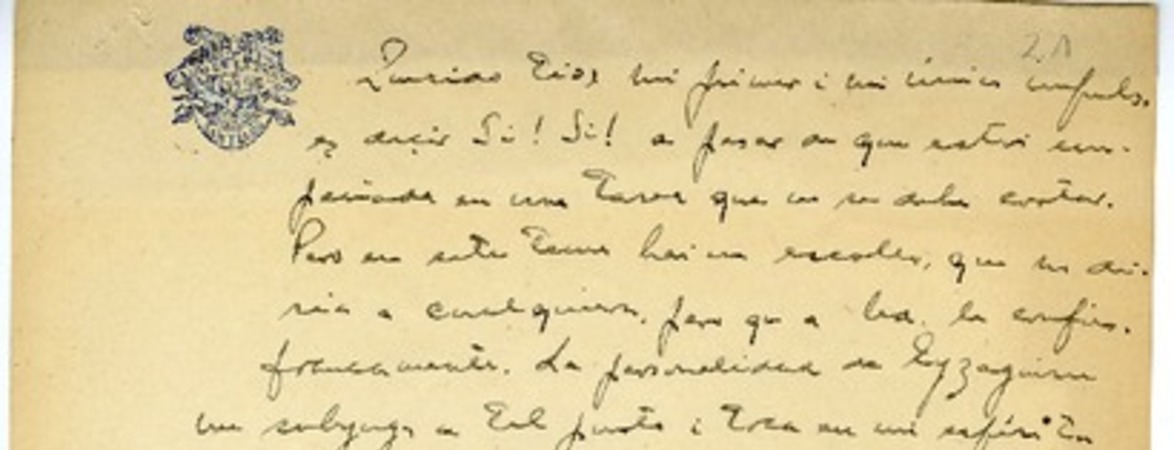 2.A
Querido mi primer i mi único impulso
es decir Si! Si! a pesar de que estoi em-
peñada en una tarea que no se debe cortar.
Pero en este tema hai un escollo, que no di-
ria a cualquiera, pero que a Ud. le confio
francamente. La personalidad de Eyzaguirre
me subyuga a tal punto i toca en mi espíritu